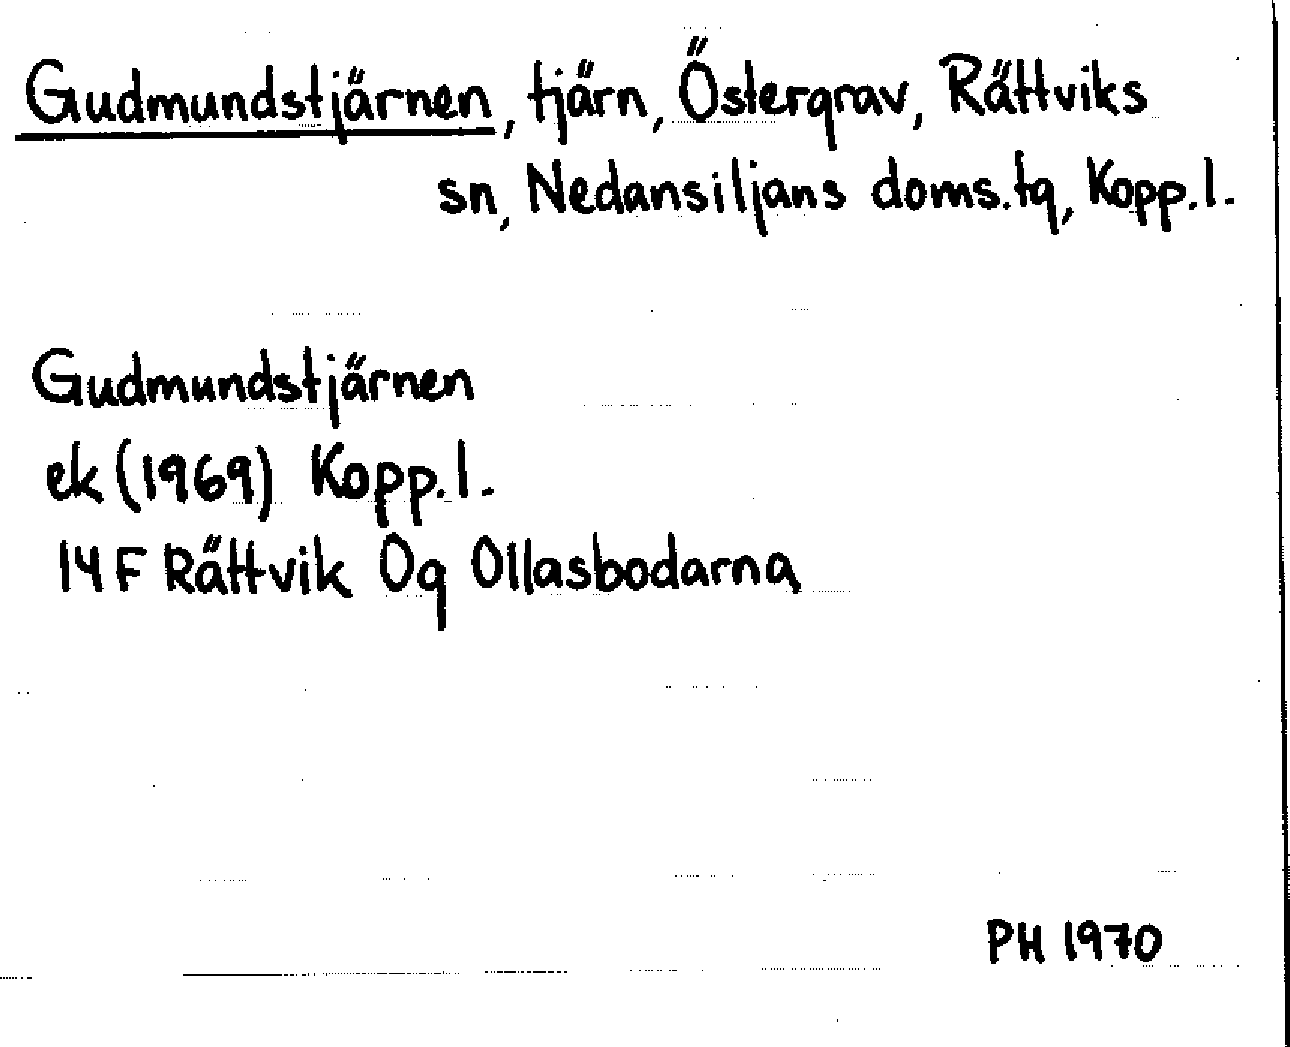 Gudmundstjärnen, tjärn, Östergrav, Rättviks
sn, Nedansiljans doms.tg, Kopp.l.
Gudmundstjärnen
ek (1969) Kopp.l.
14 F Rättvik 0g Ollasbodarna
PH 1970